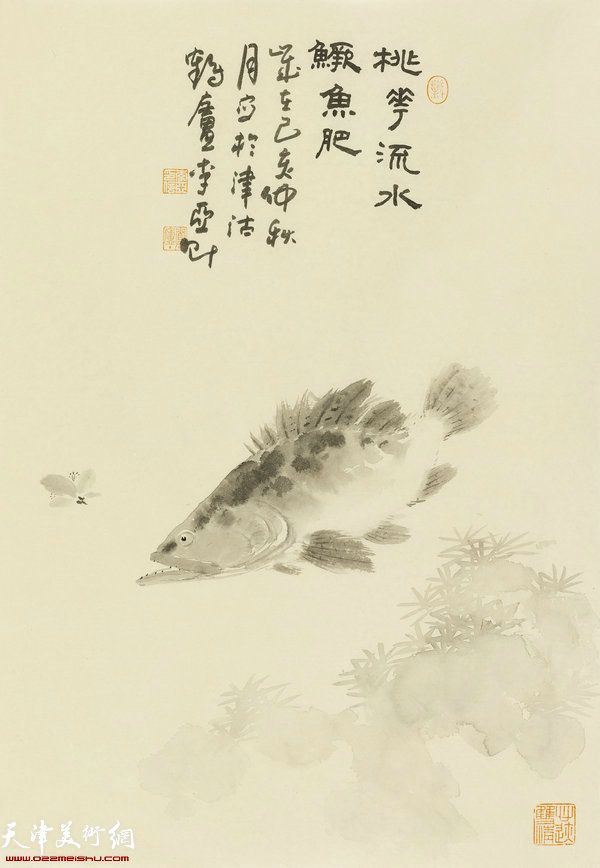 桃花流水
鳜魚肥
歲在己亥仲秋
月写於津沽
鹤廬李亞
天津美術網
www.022meishu.com